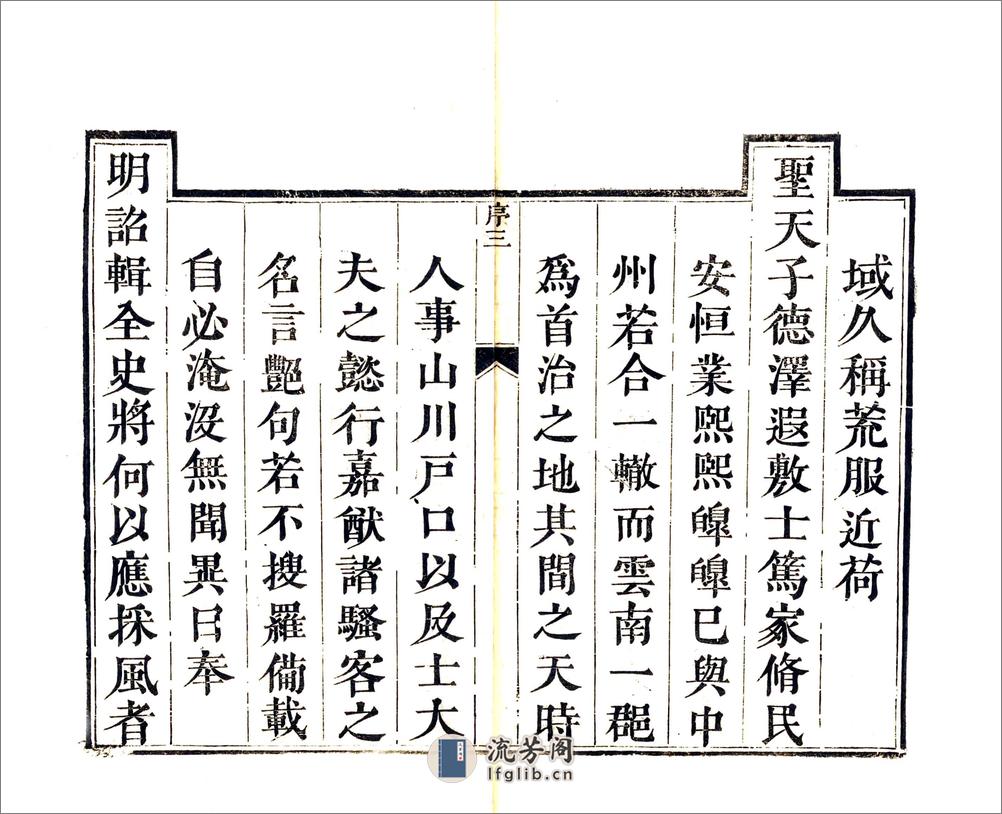 域久稱荒服近荷
聖天子德澤遐敷士篤家脩民
安恒業熙熙皞皞已與中
州若合一轍而雲南一郶
爲首治之地其間之天時
序三
人事山川戸口以及士大
夫之懿行嘉猷諸騷客之
名言艷句若不搜羅備載
自必淹沒無聞異日奉
明詔輯全史將何以應採風者
流芳阁
lfglib.cn